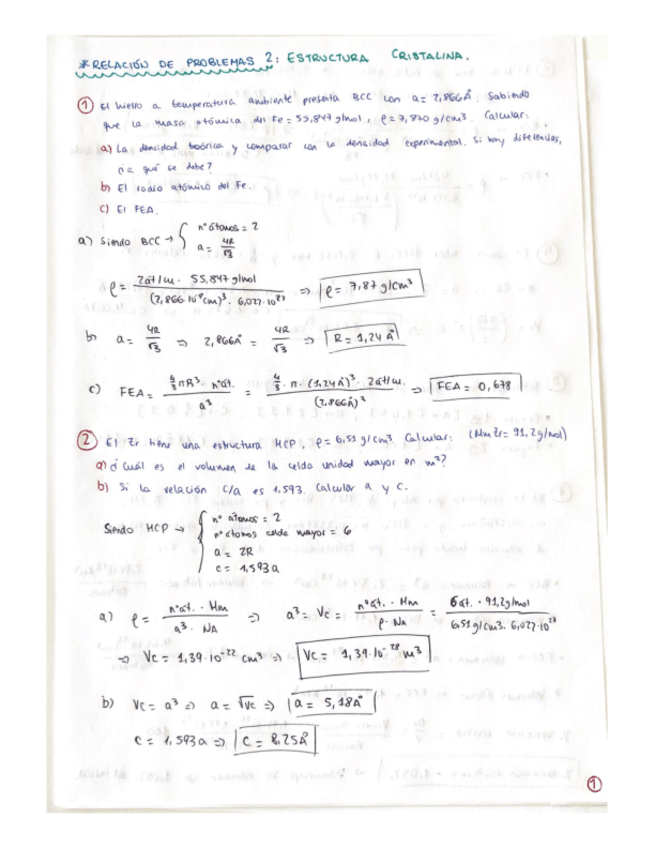 *RELACIÓN DE PROBLEMAS 2: ESTRUCTURA CRISTALINA.
① El hierro a temperatura ambiente presenta BCC con a = 2,866Å. Sabiendo
que la masa atómica del Fe = 55,847 g/mol, ρ = 7,870 g/cm³. Calcular:
a) La densidad teórica y comparar con la densidad experimental. Si hay diferencias,
¿a qué se debe?
b) El radio atómico del Fe.
c) El FEA.
a) Siendo BCC → { nº átomos = 2
a = 4R/√3
ρ = 2at/u. · 55,847 g/mol / (2,866·10⁻⁸cm)³ · 6,027·10²³ ⇒ ρ = 7,87 g/cm³
b) a = 4R/√3 ⇒ 2,866Å = 4R/√3 ⇒ R = 1,24 Å
c) FEA = 4/3 πR³ · nºat. / a³ = 4/3 · π · (1,24Å)³ · 2at/u. / (2,866Å)³ ⇒ FEA = 0,678
② El Zr tiene una estructura HCP, ρ = 6,51 g/cm³. Calcular: (Mm Zr = 91,2g/mol)
a) ¿Cuál es el volumen de la celda unidad mayor en m³?
b) Si la relación c/a es 1.593. Calcular a y c.
Siendo HCP → { nº átomos = 2
nº átomos celda mayor = 6
a = 2R
c = 1,593a
a) ρ = nºat. · Mm / a³ · NA ⇒ a³ = Vc = nºat. · Mm / ρ · NA = 6at. · 91,2g/mol / 6,51 g/cm³ · 6,027·10²³
⇒ Vc = 1,39·10⁻²² cm³ ⇒ Vc = 1,39·10⁻²⁸ m³
b) Vc = a³ ⇒ a = ∛Vc ⇒ a = 5,18Å
c = 1,593a ⇒ c = 8,25Å
①